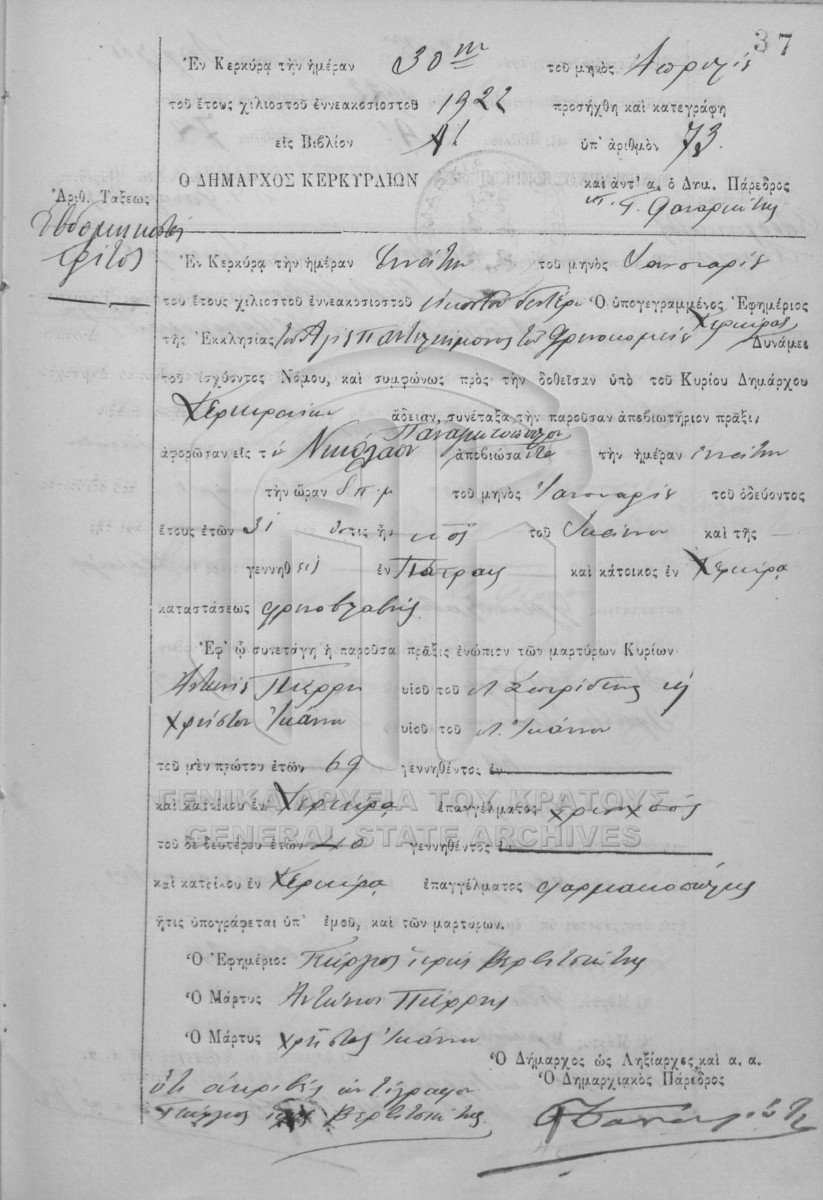 37
Ἐν Κερκύρᾳ τὴν ἡμέραν 30ην τοῦ μηνὸς Ἀπριλίου
τοῦ ἔτους χιλιοστοῦ ἐννεακοσιοστοῦ 1922 προσήχθη καὶ κατεγράφη
εἰς Βιβλίον Α! ὑπ' ἀριθμὸν 73.
Ο ΔΗΜΑΡΧΟΣ ΚΕΡΚΥΡΑΙΩΝ καὶ ἀντ' α. ὁ Δημ. Πάρεδρος
Ἀριθ. Τάξεως
Ἑβδομηκοστὸς
τρίτος
Ἐν Κερκύρᾳ τὴν ἡμέραν ἐννάτην τοῦ μηνὸς Ἰανουαρίου
τοῦ ἔτους χιλιοστοῦ ἐννεακοσιοστοῦ εἰκοστοῦ δευτέρου Ὁ ὑπογεγραμμένος Ἐφημέριος
τῆς Ἐκκλησίας τοῦ Ἁγίου Παντελεήμονος τοῦ Φρενοκομείου Κερκύρας Δυνάμει
τοῦ ἰσχύοντος Νόμου, καὶ συμφώνως πρὸς τὴν δοθεῖσαν ὑπὸ τοῦ Κυρίου Δημάρχου
Κερκυραίων ἄδειαν, συνέταξα τὴν παροῦσαν ἀποβιωτήριον πρᾶξιν
ἀφορῶσαν εἰς τὸ Νικόλαον ἀποβιώσαντα τὴν ἡμέραν ἐννάτην
τὴν ὥραν π.μ τοῦ μηνὸς Ἰανουαρίου τοῦ ὁδεύοντος
ἔτους ἐτῶν 31 ὅστις ἦν υἱὸς τοῦ Ἰωάννου καὶ τῆς —
γεννηθεὶς ἐν Πάτραις καὶ κάτοικος ἐν Κερκύρᾳ
καταστάσεως φρενοβλαβής.
Ἐφ' ᾧ συνετάγη ἡ παροῦσα πρᾶξις ἐνώπιον τῶν μαρτύρων Κυρίων
Ἀντωνίου Πιέρρη υἱοῦ τοῦ Σπυρίδωνος καὶ
Χρήστου Ἰωάννου υἱοῦ τοῦ Ἰωάννου
τοῦ μὲν πρώτου ἐτῶν 69 γεννηθέντος ἐν
καὶ κατοίκου ἐν Κερκύρᾳ ἐπαγγέλματος
ΓΕΝΙΚΑ ΑΡΧΕΙΑ ΤΟΥ ΚΡΑΤΟΥΣ
GENERAL STATE ARCHIVES
τοῦ δὲ δευτέρου ἐτῶν 40 γεννηθέντος ἐν
καὶ κατοίκου ἐν Κερκύρᾳ ἐπαγγέλματος φαρμακοποιὸς
ἥτις ὑπογράφεται ὑπ' ἐμοῦ, καὶ τῶν μαρτύρων.
Ὁ Ἐφημέριος Γεώργιος ἱερεὺς Βερβιτσιώτης
Ὁ Μάρτυς Ἀντώνιος Πιέρρης
Ὁ Μάρτυς Χρῆστος Ἰωάννου
Ὁ Δήμαρχος ὡς Ληξίαρχος καὶ α. α.
Ὁ Δημαρχιακὸς Πάρεδρος
ὅτι ἀκριβὲς ἀντίγραφον
Γεώργιος ἱερεὺς Βερβιτσιώτης